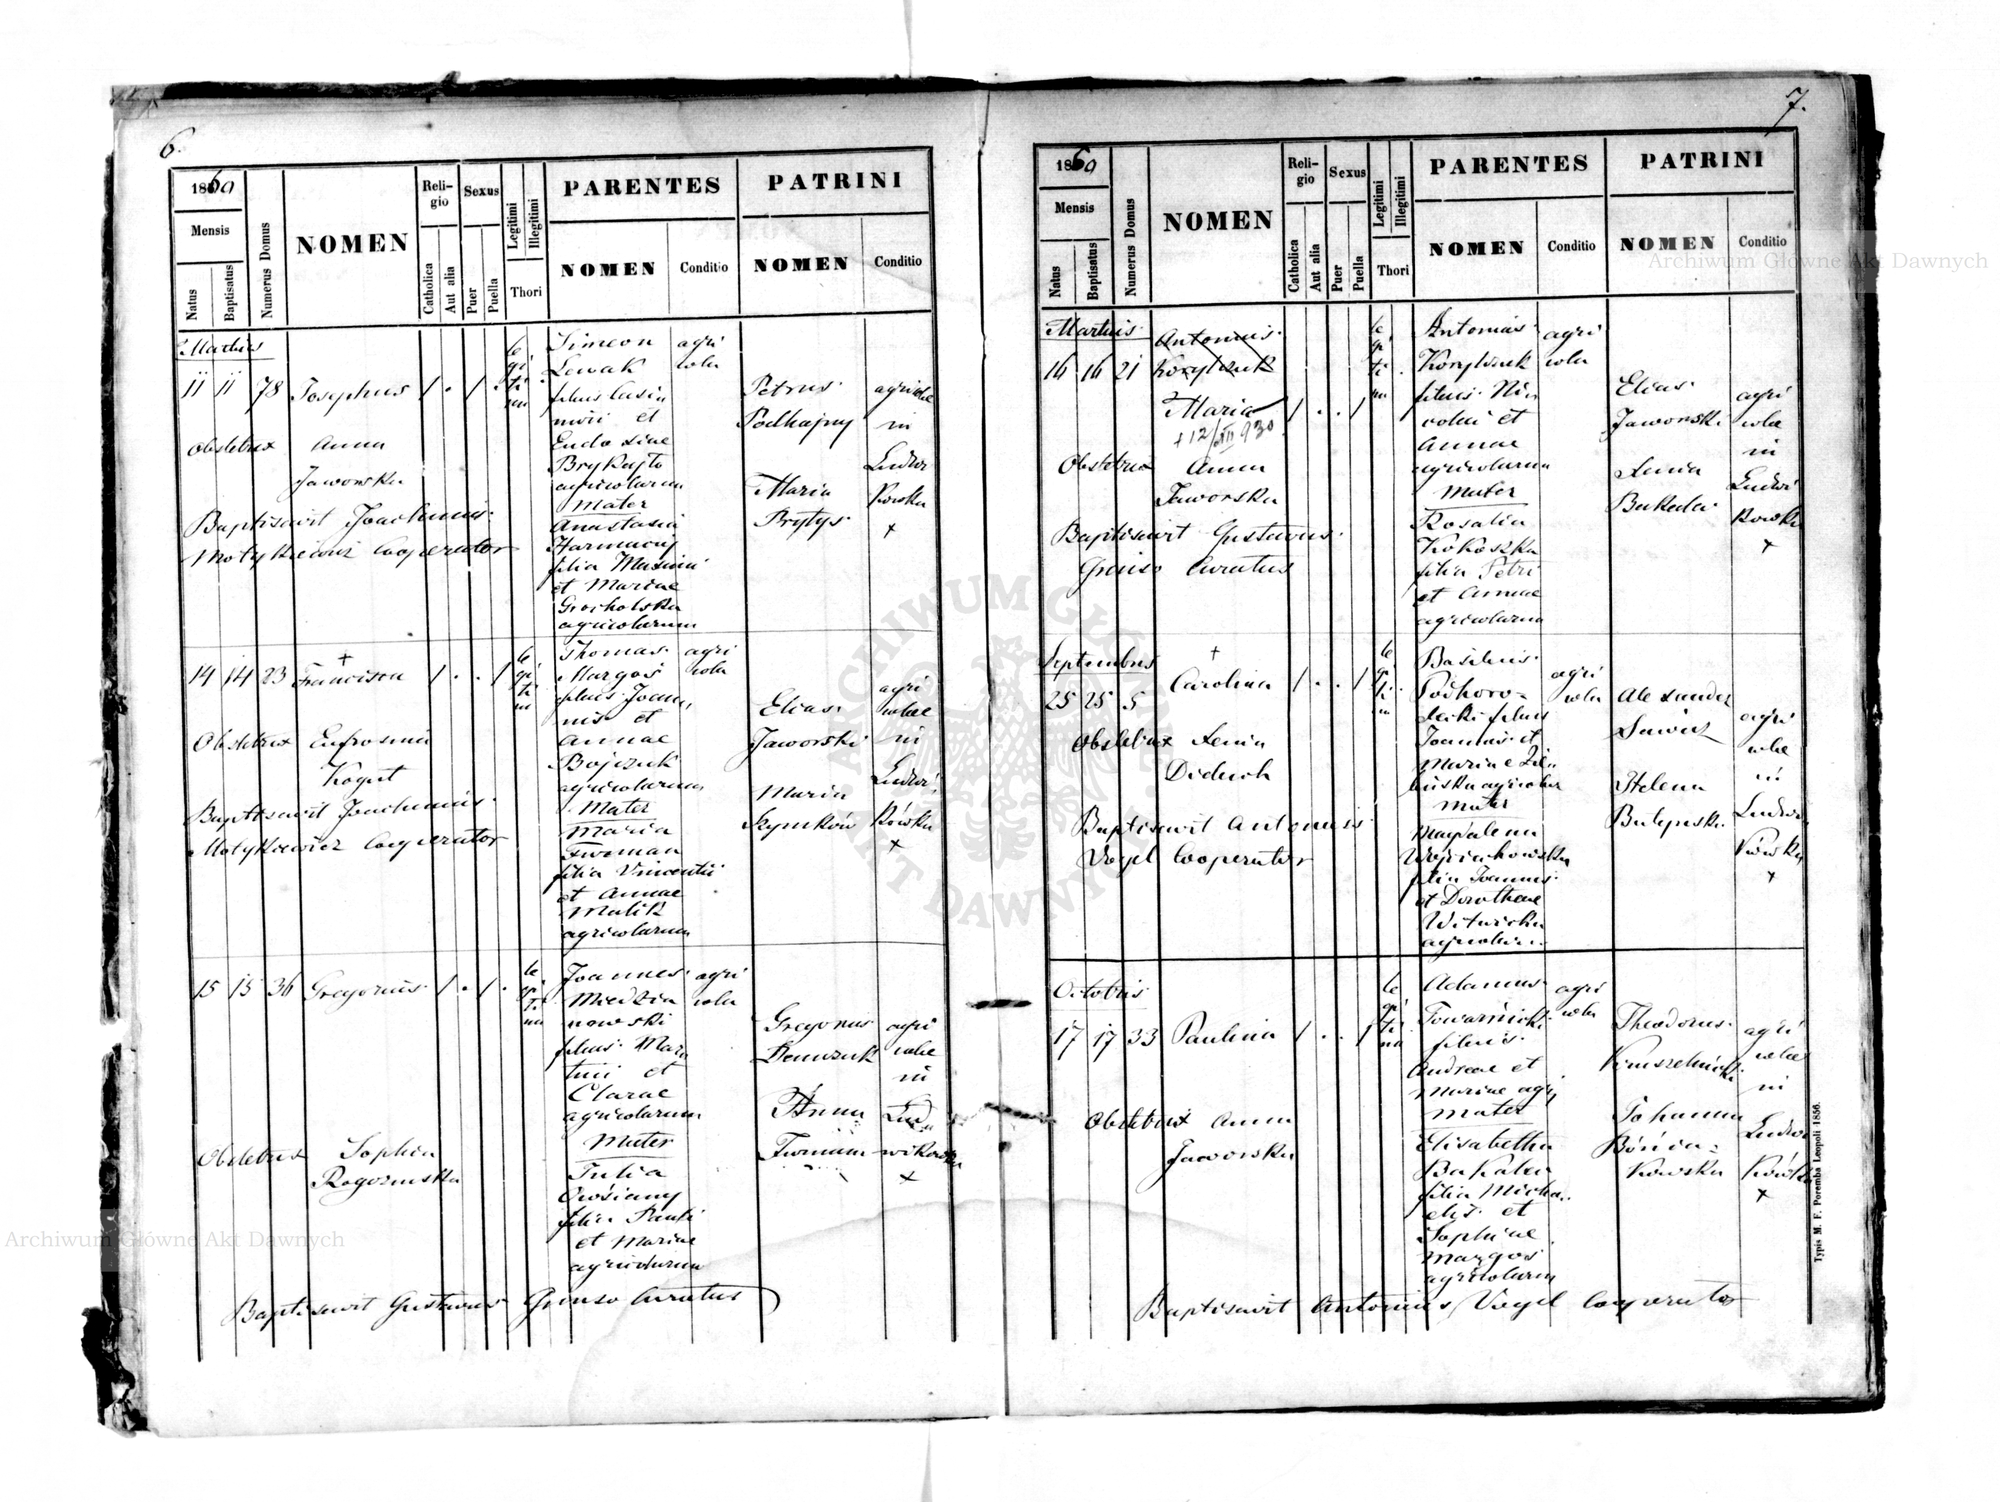 6.
1860
Mensis
Natus
Baptisatus
Numerus Domus
NOMEN
Religio
Catholica
Aut alia
Sexus
Puer
Puella
Legitimi
Illegitimi
Thori
PARENTES
NOMEN
Conditio
PATRINI
NOMEN
Conditio
Martius
11 11 78 Josephus 1 . 1 .
legitimi
Obstetrix Anna
Jaworska
Baptisavit Joachimus
Motykiewicz Cooperator
Simeon agri
Lewak cola
filius Casi
miri et
Eudoxiae
Brykajto
agricolarum
Mater
Anastasia
Harmaciej
filia Maximi
et Mariae
Grocholska
agricolarum
Petrus
Podhajny
Maria
Prytys
agricolae
in
Ludwi
kowka
+
14 14 23 Francisca 1 . . 1
+
legitimi
Obstetrix Eufrosina
Kogut
Baptisavit Joachimus
Motykiewicz Cooperator
Thomas agri
Margos cola
filius Joan
nis et
Annae
Bojczuk
agricolarum
Mater
Maria
Furman
filia Vincentii
et Annae
Malik
agricolarum
Elias
Jaworski
Maria
Szymków
agri
colae
in
Ludwi
kówka
+
15 15 36 Gregorius 1 . 1 .
legitimi
Obstetrix Sophia
Rogozinska
Joannes agri
Miedzia cola
nowski
filius Mar
tini et
Clarae
agricolarum
Mater
Julia
Owsiany
filia Pauli
et Mariae
agricolarum
Gregorius
Demczuk
Anna
Furman
agri
colae
in
Lud
wikowka
+
Baptisavit Gustavus Curatus
7.
1860
Mensis
Natus
Baptisatus
Numerus Domus
NOMEN
Religio
Catholica
Aut alia
Sexus
Puer
Puella
Legitimi
Illegitimi
Thori
PARENTES
NOMEN
Conditio
PATRINI
NOMEN
Conditio
Martius
Antonius
Korylczuk
16 16 21
Maria 1 . . 1
+12/XII 930
legitimi
Obstetrix Anna
Jaworska
Baptisavit Gustavus
Curatus
Antonius agri
Korylczuk cola
filius Ni
colai et
Annae
agricolarum
Mater
Rosalia
Kokoszka
filia Petri
et Annae
agricolarum
Elias
Jaworski
Xenia
Bakalei
agri
colae
in
Ludwi
kowka
+
Septembris
25 25 5 Carolina 1 . . 1
+
legitimi
Obstetrix Xenia
Diduch
Baptisavit Antonius
Vogel Cooperator
Basilius agri
Podhoro= cola
decki filius
Joannis et
Mariae Zie
linska agricolar
Mater
Magdalena
Wojciechowska
filia Joannis
et Dorotheae
Witwicka
agricolarum
Alexander
Sawicz
Helena
agri
colae
in
Ludwi
kówka
+
Octobris
17 17 33 Paulina 1 . . 1
legitimi
Obstetrix Anna
Jaworska
Adamus agri
Towarnicki cola
filius
Andreae et
Mariae agr
Mater
Elisabetha
Bakalei
filia Micha
elis et
Sophiae
Margos
agricolarum
Theodorus
Kruszelnicki
Johanna
kowska
agri
colae
in
Ludwi
kówka
+
Baptisavit Antonius Vogel Cooperator
Typis M. F. Poremba Leopoli 1856.
Archiwum Główne Akt Dawnych
Archiwum Główne Akt Dawnych
ARCHIWUM GŁÓWNE AKT DAWNYCH